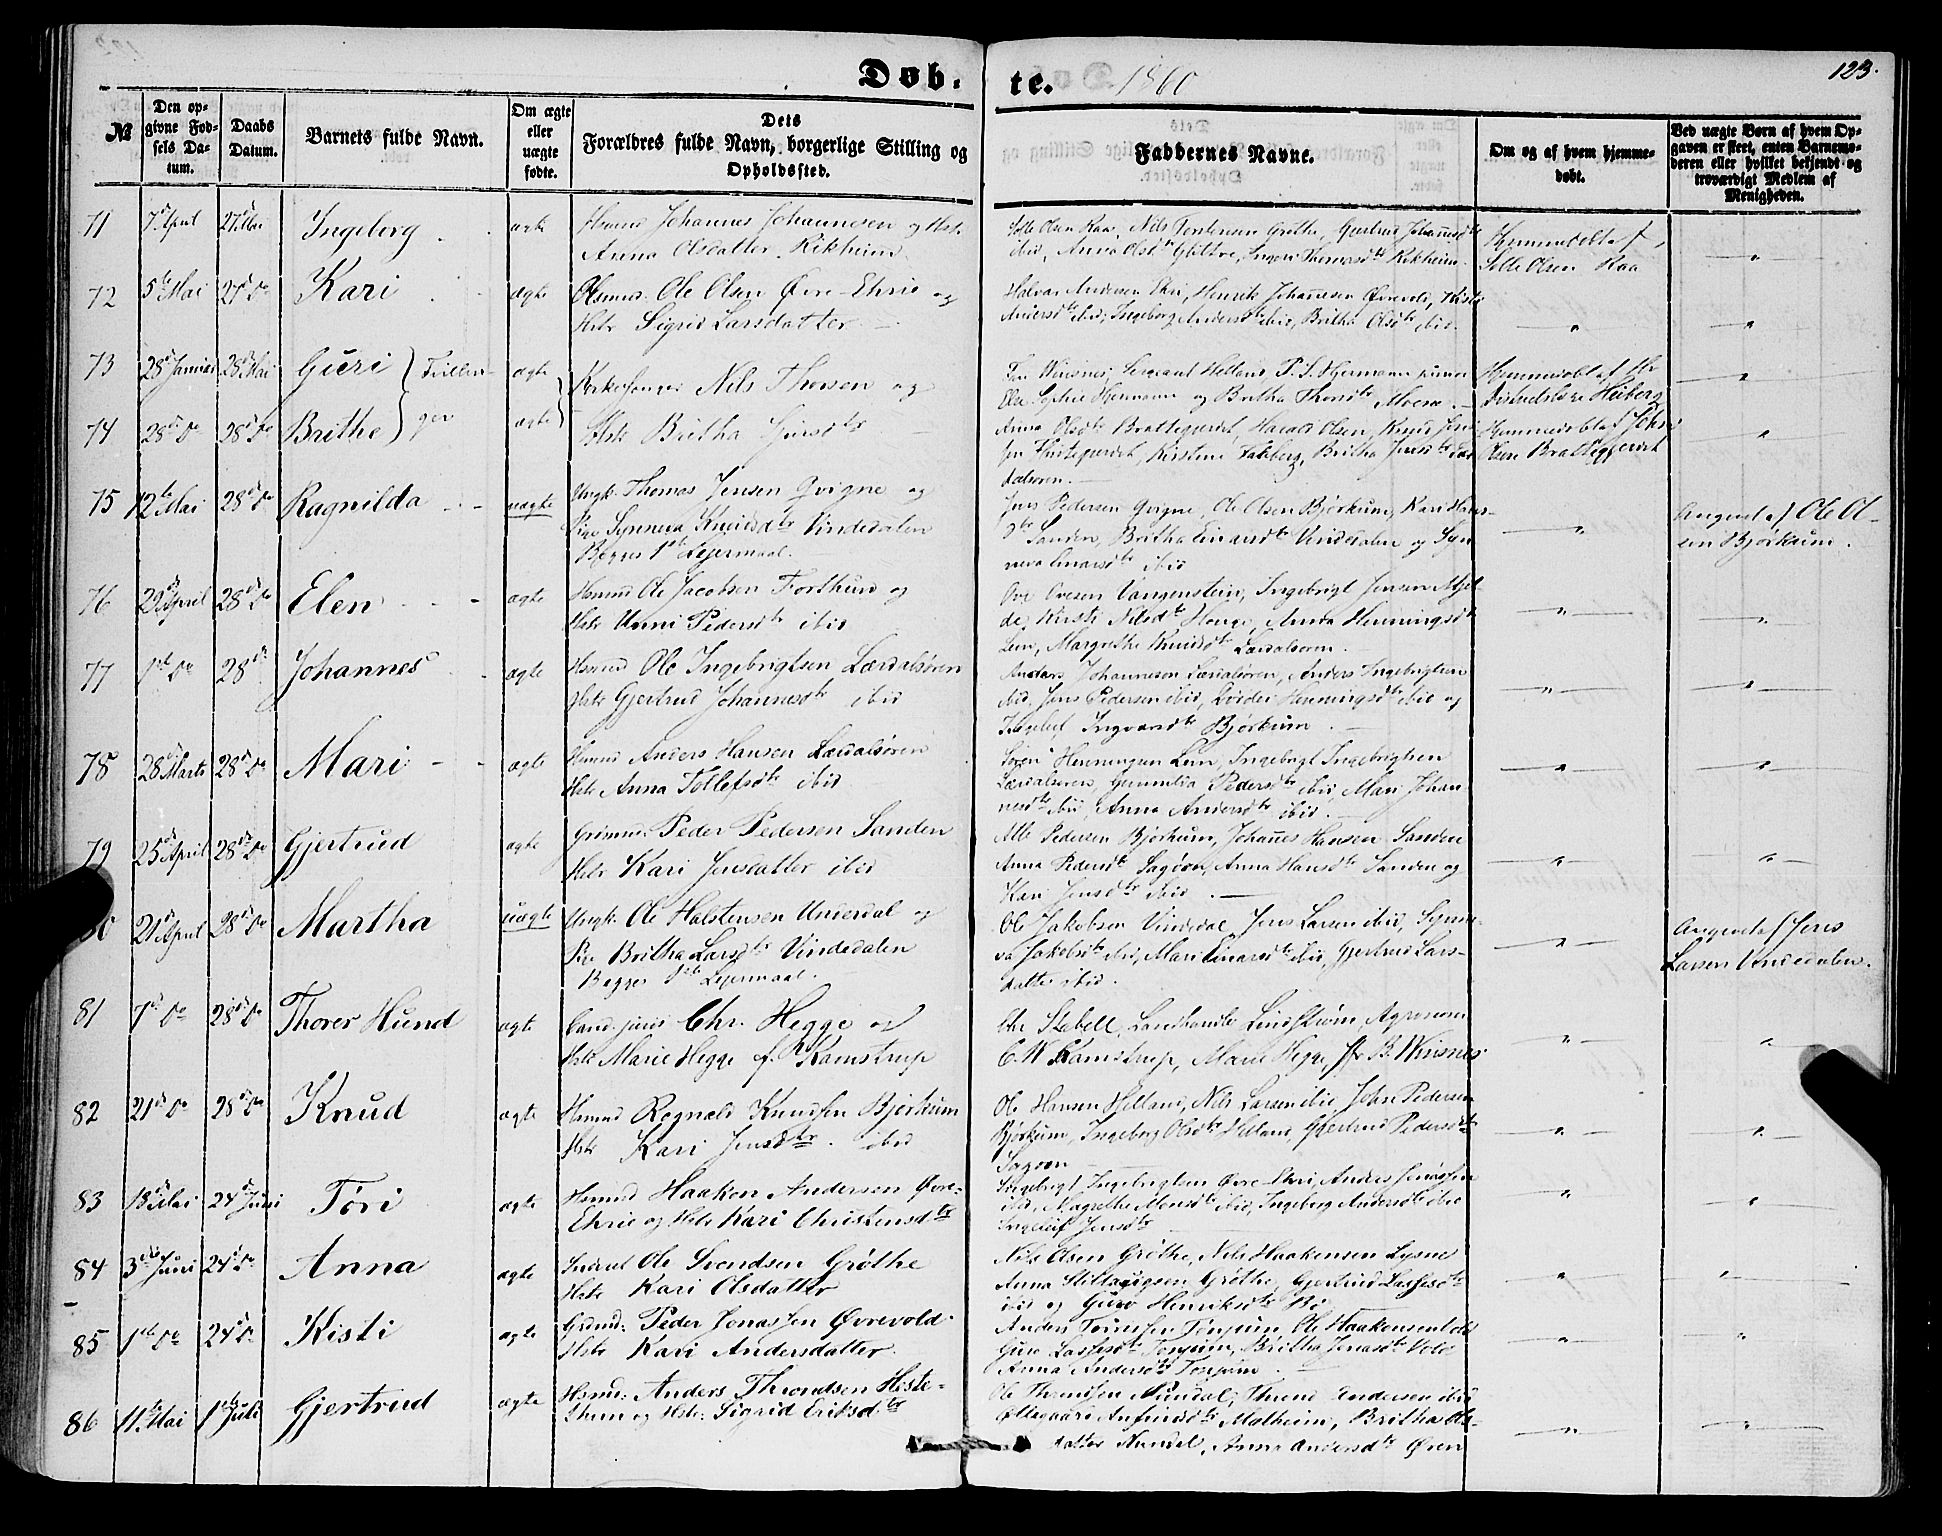 Døb. te. 1860 123.
№
Den opgivne Fødsels Datum.
Daabs Datum.
Barnets fulde Navn.
Om ægte eller uægte fødte.
Dets Forældres fulde Navn, borgerlige Stilling og Opholdssted.
Faddernes Navne.
Om og af hvem hjemmedøbt.
Ved uægte Børn af hvem Opgaven er skeet, enten Barnemoderen eller hvilket bekjendt og troværdigt Medlem af Menigheden.
71 7d April 27d Mai Ingeborg ægte Hsmnd Johannes Johannesen og Hst.
Anna Olsdatter Rikheim
Olsen Raa, Nils Torstensen Grøthe, Gjertrud Johannesdtr
ibid, Anna Olsdtr Glittre, Thomasdtr Rikheim
Hjemmedøbt af
Olsen Raa
72 5te Mai 27d Do Kari ægte Ole Olsen Øvre-Ehrie og
Hstr Sigrid Larsdatter
Halvar Andersen Ehri, Henrik Johannesen Øvrevold, Kisti
Andersdtr ibid, Ingeborg Andersdtr ibid, Britha Olsdtr ibid.
73 28d Januar 28d Mai Guri Tvillin- ægte Kirkesanger Nils Thorsen og
Winsnes, Sergeant Helland, P. S. Hjermann junior
Else Sophie Hjermann og Britha Thorsdtr Moene
Hjemmedøbt af Hr
Distriktslæge Heiberg
74 28d Do 28d Do Brithe ger ægte Hstr Britha Jensdtr
Anna Olsdtr Brattegjerdet, Harald Olsen, Knud Jen-
sen, Kirstine Faleberg, Britha Jensdtr Lær-
dalsøren.
Hjemmedøbt af Johs
Olsen Brattegjerdet
75 12te Mai 28d Do Ragnilda uægte Ungk. Thomas Jensen Qvigne og
Pige Synneva Knudsdtr Vindedalen
Begges 1ste Lejermaal.
Jens Pedersen Qvigne, Ole Olsen Bjørkum, Kari Hans-
dtr Sanden, Britha Einarsdtr Vindedalen og Syn
neva Einarsdtr ibid
Angivet af Ole Ol-
sen Bjørkum.
76 29d April 28d Do Elen ægte Hsmnd Ole Jacobsen Forthun og
Hstr Unni Pedersdtr ibid
Ove Ovesen Vangenstein, Ingebrigt Jensen Mjel-
de, Kirsti Nilsdtr Hauge, Anna Henningsdtr
Lein, Margrethe Knudsdtr Lærdalsøren.
77 1ste Do 28d Johannes ægte Hsmnd Ole Ingebrigtsen Lærdalsøren
Hstr Gjertrud Johannesdtr ibid
Anders Johannesen Lærdalsøren, Anders Ingebrigtsen
ibid, Jens Pedersen ibid, Henningsdtr ibid og
Ingvarsdtr Bjørkum.
78 28d Marts 28d Do Mari ægte Hsmnd Anders Hansen Lærdalsøren
Hstr Anna Tollefsdtr ibid
Søren Henningsen Lein, Ingebrigt Ingebrigtsen
Lærdalsøren, Gunnilda Pedersdtr ibid, Mari Johan
nesdtr ibid, Anna Andersdtr ibid.
79 25d April 28d Do Gjertrud ægte Grdmnd. Peder Pedersen Sanden
Hstr Kari Jensdatter ibid
Pedersen Bjørkum, Johannes Hansen Sanden
Anna Pedersdtr Sagøren, Anna Hansdtr Sanden og
Kari Jensdtr ibid.
80 21d April 28d Do Martha uægte Ungk. Ole Halstensen Underdal og
Pige Britha Larsdtr Vindedalen
Begges 1ste Lejermaal.
Ole Jakobsen Vindedal, Jens Larsen ibid, Synne-
va Jakobsdtr ibid, Mari Einarsdtr ibid, Gjertrud Lars-
datter ibid.
Angivet af Jens
Larsen Vindedalen.
81 7d Do 28d Do Thorer Hund ægte Cand. juris Chr. Hegge og
Hstr Marie Hegge f. Kamstrup
Chr Stabell, Landhandler Lindstrøm, Agronom
C. W. Kamstrup, Marie Hegge, fr B. Winsnes
82 21d Do 28d Do Knud ægte Hsmnd Rognald Knudsen Bjørkum
Hstr Kari Jensdtr. ibid
Ole Hansen Helland, Nils Larsen ibid, John Pedersen
Bjørkum, Ingeborg Olsdtr Helland, Gjertrud Pedersdtr
Sagøren
83 13d Mai 24d Juni Tøri ægte Hsmnd Haakon Andersen Øvre-
Ehrie og Hstr Kari Christensdtr
Ingebrigt Ingebrigtsen Øvre-Ehri, Anders
ibid, Magrethe Monsdtr ibid, Ingeborg Andersdtr ibid
Jensdtr
84 3die Juni 24d Do Anna ægte Inderst Ole Svendsen Grøthe
Hstr Kari Olsdatter
Nils Olsen Grøthe, Nils Haakensen Lysne
Anna Grøthe, Gjertrud Lassesdtr
ibid og Guro Henriksdtr Bø
85 1ste Do 24d Do Kisti ægte Grdmd: Peder Jonassen Øvrevold.
Hstr Kari Andersdatter
Anders Tønjum, Ole Haakonsen Vold
Guro Lassesdtr Tønjum, Britha Jonasdtr Vold
Anna Andersdtr Tønjum
86 11te Mai 1ste Juli Gjertrud ægte Hsmd: Anders Throndsen Histe-
thun og Hstr: Sigrid Eriksdtr
Ole Throndsen Nundal, Thrond Andersen ibid
Arfindsdtr Molheim, Britha Ols-
datter Nundal, Anna Andersdtr Øren